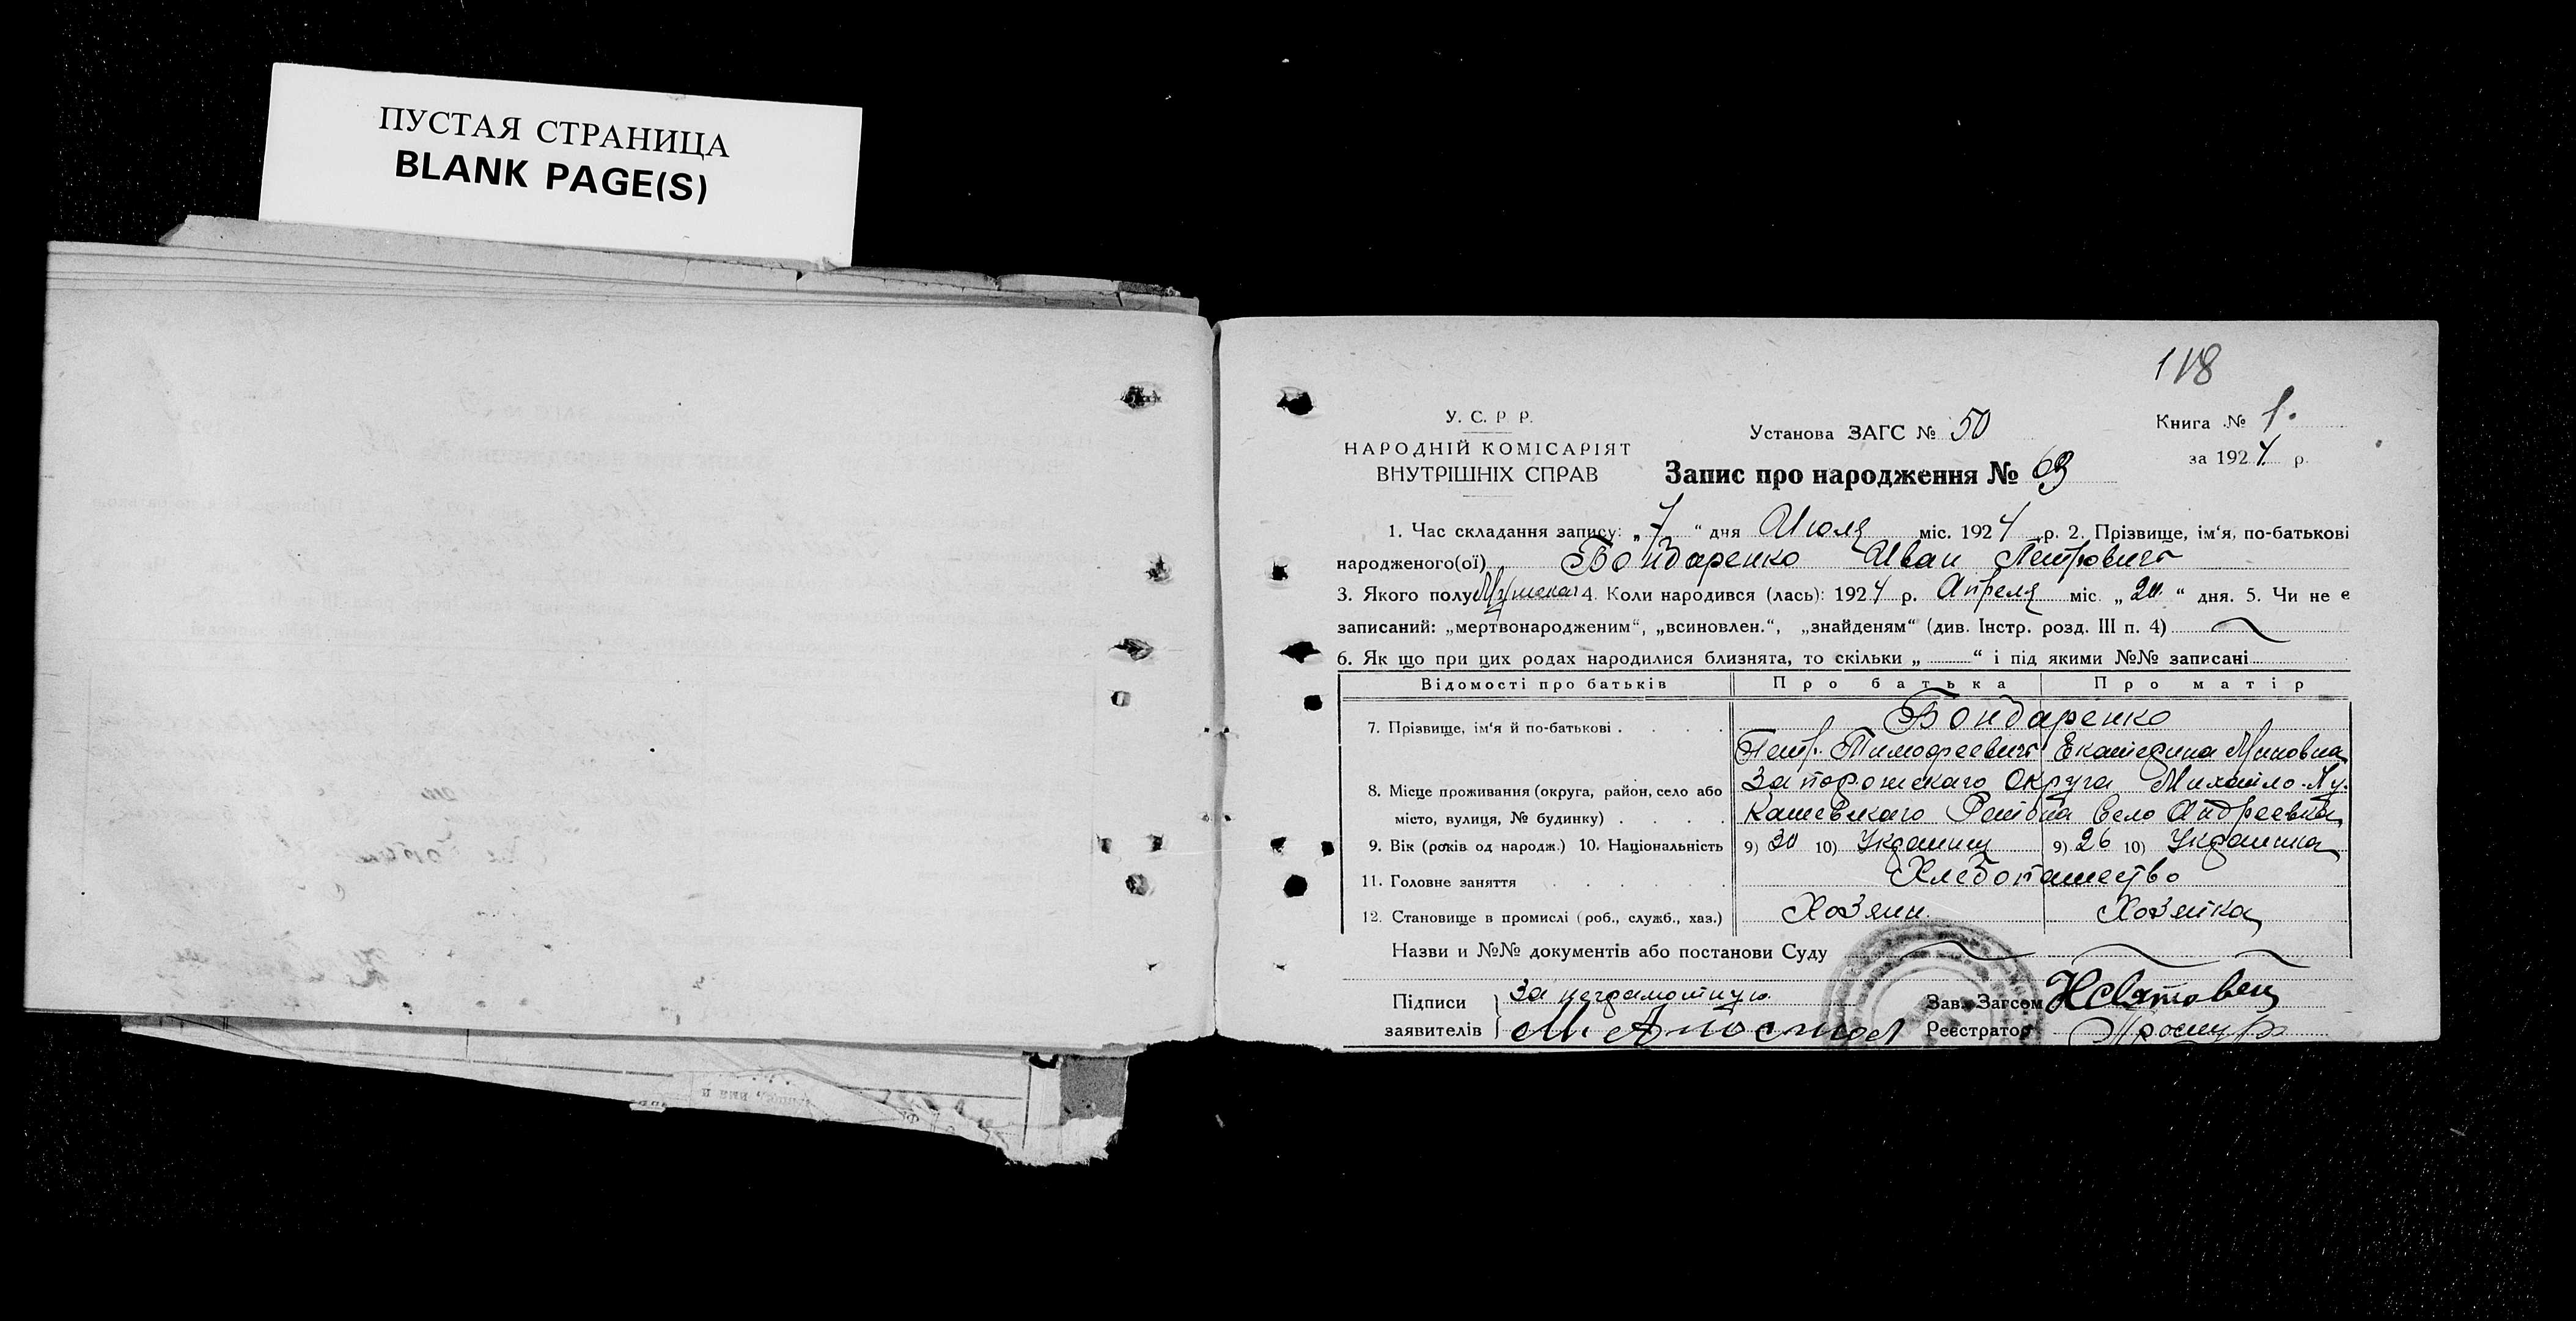 ПУСТАЯ СТРАНИЦА
BLANK PAGE(S)
118
У. С. Р. Р.
НАРОДНІЙ КОМІСАРІЯТ
ВНУТРІШНІХ СПРАВ
Установа ЗАГС № 50
Запис про народження № 63
Книга № 1.
за 1924 р.
1. Час складання запису: „7“ дня Июля міс. 1924 р. 2. Прізвище, ім‘я, по-батькові
народженого(ої) Бондаренко Иван Петрович
3. Якого полу Мужской 4. Коли народився (лась): 1924 р. Апреля міс. „20“ дня. 5. Чи не є
записаний: „мертвонародженим“, „всиновлен.“, „знайденям“ (див. Інстр. розд. III п. 4)
6. Як що при цих родах народилися близнята, то скільки „ “ і під якими №№ записані
Відомості про батьків Про батька Про матір
7. Прізвище, ім‘я й по-батькові . . . . Бондаренко
Петр Тимофеевич Екатерина Миновна
8. Місце проживання (округа, район, село або Запорожскаго Округа Михайло-Лу-
місто, вулиця, № будинку) . . . . кашевскаго Района Село Андреевка
9. Вік (років од народж.) 10. Національність 9) 30 10) Украинец 9) 26 10) Украинка
11. Головне заняття . . . . . . Хлебопашество
12. Становище в промислі (роб., служб., хаз.) Хозяин Хозяйка
Назви и №№ документів або постанови Суду
Підписи За неграмотную Зав. Загсом
заявителів М. Апостол Реєстратор